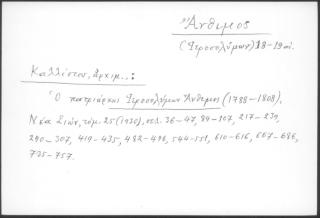 Ἄνθιμος
(Ἱεροσολύμων) 18-19 αἰ.
Καλλίστου, Ἀρχιμ..:
Ὁ πατριάρχης Ἱεροσολύμων Ἄνθιμος (1788-1808),
Νέα Σιών, τόμ. 25 (1930), σελ. 36-47, 89-107, 217-239,
290-307, 419-435, 482-496, 544-551, 610-616, 667-686,
735-757.